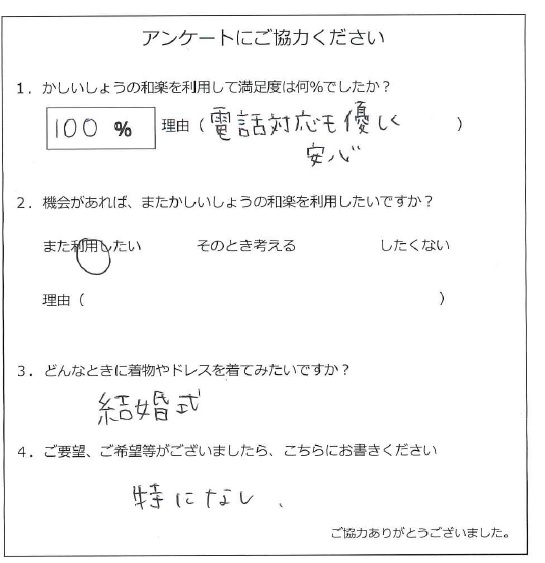 アンケートにご協力ください
1．かしいしょうの和楽を利用して満足度は何%でしたか？
100 % 理由（電話対応も優しく）
安心
2．機会があれば、またかしいしょうの和楽を利用したいですか？
また利用したい そのとき考える したくない
理由（ ）
3．どんなときに着物やドレスを着てみたいですか？
結婚式
4．ご要望、ご希望等がございましたら、こちらにお書きください
特になし、
ご協力ありがとうございました。